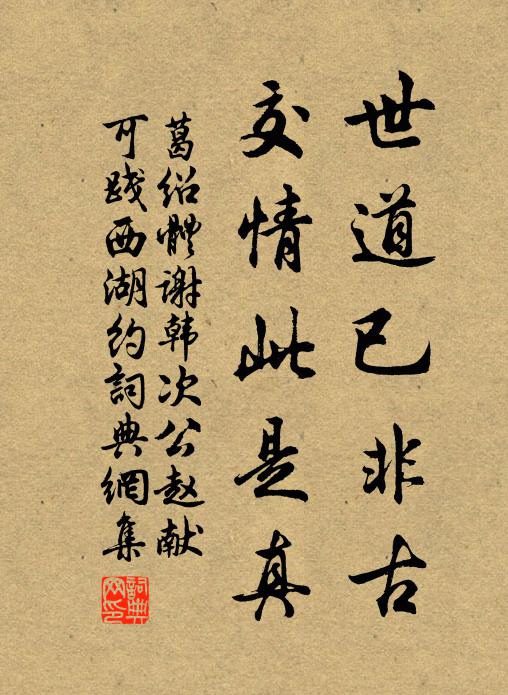 世道已非古
交情此是真
葛绍體谢韩次公赵献
可践西湖约詞典網集
詞典
网印